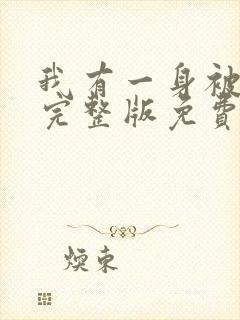 我有一身被
完整版免费
煐束